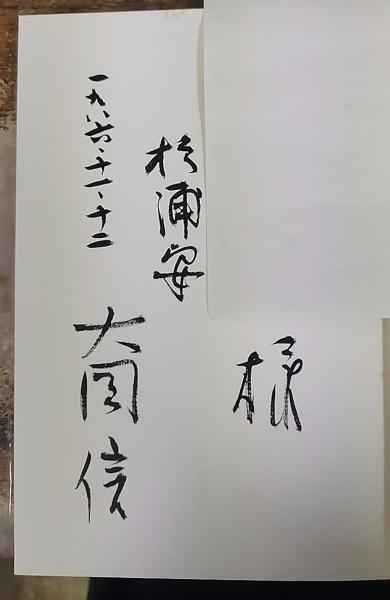 様
於浦安
一九八六、十一、十二
大岡信